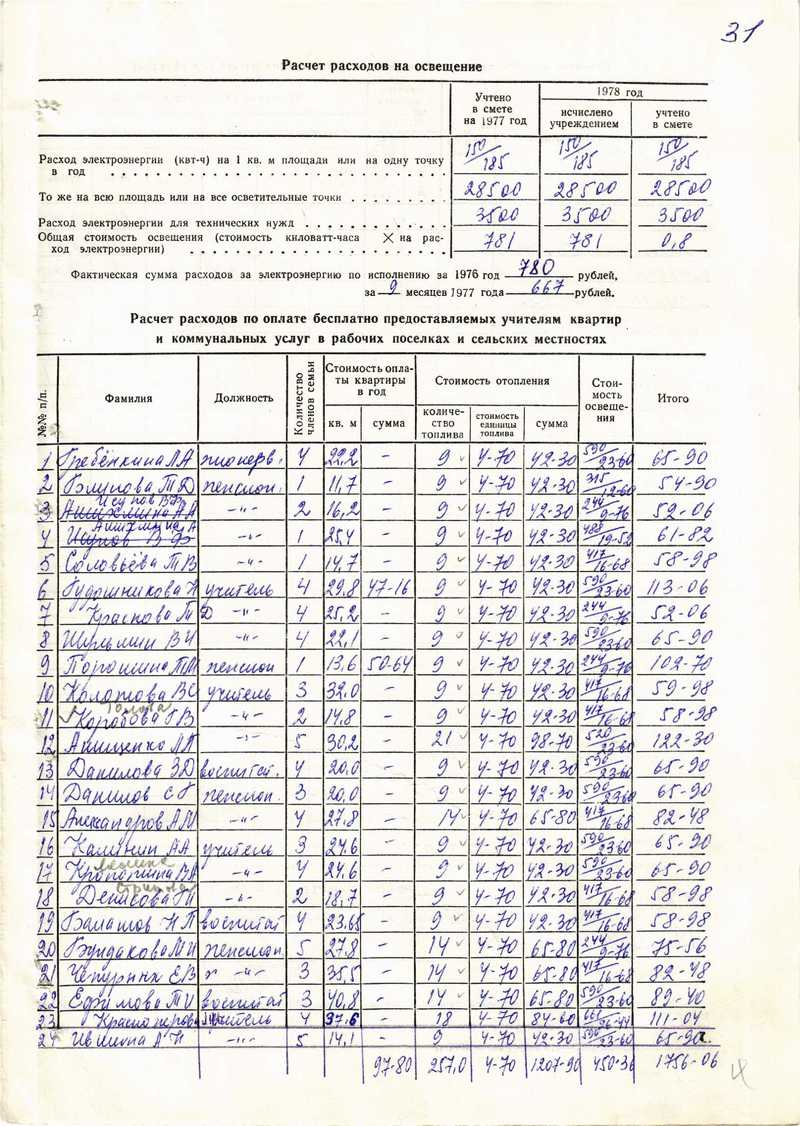 31
Расчет расходов на освещение
Учтено в смете на 1977 год | 1978 год
исчислено учреждением | учтено в смете
Расход электроэнергии (квт-ч) на 1 кв. м площади или на одну точку в год 150/185 150/185 150/185
То же на всю площадь или на все осветительные точки 28500 28500 28500
Расход электроэнергии для технических нужд 3500 3500 3500
Общая стоимость освещения (стоимость киловатт-часа × на расход электроэнергии) 781 781 0,8
Фактическая сумма расходов за электроэнергию по исполнению за 1976 год 780 рублей,
за 9 месяцев 1977 года 667 рублей.
Расчет расходов по оплате бесплатно предоставляемых учителям квартир
и коммунальных услуг в рабочих поселках и сельских местностях
№№ п/п. | Фамилия | Должность | Количество членов семьи | Стоимость оплаты квартиры в год | Стоимость отопления | Стоимость освещения | Итого
кв. м | сумма | количество топлива | стоимость единицы топлива | сумма
1 Гребёнкина ЛА пионерв. 4 22,2 - 9 4-70 42-30 590/23-60 65-90
2 ТД пенсион. 1 11,7 - 9 4-70 42-30 315/12-60 54-90
3 Исупов ВФ -"- 2 16,2 - 9 4-70 42-30 244/9-76 52-06
4 -"- 1 25,4 - 9 4-70 42-30 488/19-52 61-82
5 Соловьёва ТВ -"- 1 14,7 - 9 4-70 42-30 417/16-68 58-98
6 учитель 4 29,8 47-16 9 4-70 42-30 590/23-60 113-06
7 Краснова ТД -"- 4 25,2 - 9 4-70 42-30 244/9-76 52-06
8 ВИ -"- 4 22,1 - 9 4-70 42-30 590/23-60 65-90
9 Порошина ТМ пенсион 1 13,6 50-64 9 4-70 42-30 244/9-76 102-70
10 Колотова ВС учитель 3 32,0 - 9 4-70 42-30 417/16-68 59-98
11 Коробова ГВ -"- 2 14,8 - 9 4-70 42-30 417/16-68 58-98
12 Анищенко ЛП -"- 5 30,2 - 21 4-70 98-70 520/23-60 122-30
13 Данилова ЗД воспитат. 4 20,0 - 9 4-70 42-30 590/23-60 65-90
14 Данилов СГ пенсион. 3 20,0 - 9 4-70 42-30 590/23-60 65-90
15 Александров АМ -"- 4 27,8 - 14 4-70 65-80 417/16-68 82-48
16 Калинин АА учитель 3 24,6 - 9 4-70 42-30 590/23-60 65-90
17 -"- 4 24,6 - 9 4-70 42-30 590/23-60 65-90
18 Денисова -"- 2 18,7 - 9 4-70 42-30 417/16-68 58-98
19 НП воспитат 4 23,65 - 9 4-70 42-30 417/16-68 58-98
20 Бундакова МИ пенсион. 5 27,8 - 14 4-70 65-80 244/9-76 75-56
21 Чепурных ЕВ -"- 3 35,5 - 14 4-70 65-80 417/16-68 82-48
22 Ефимова ТИ воспитат 3 40,8 - 14 4-70 65-80 590/23-60 89-40
23 учитель 4 37,6 - 18 4-70 84-60 661/26-44 111-04
24 -"- 5 14,1 - 9 4-70 42-30 590/23-60 65-90
97-80 257,0 4-70 1207-90 450-36 1756-06